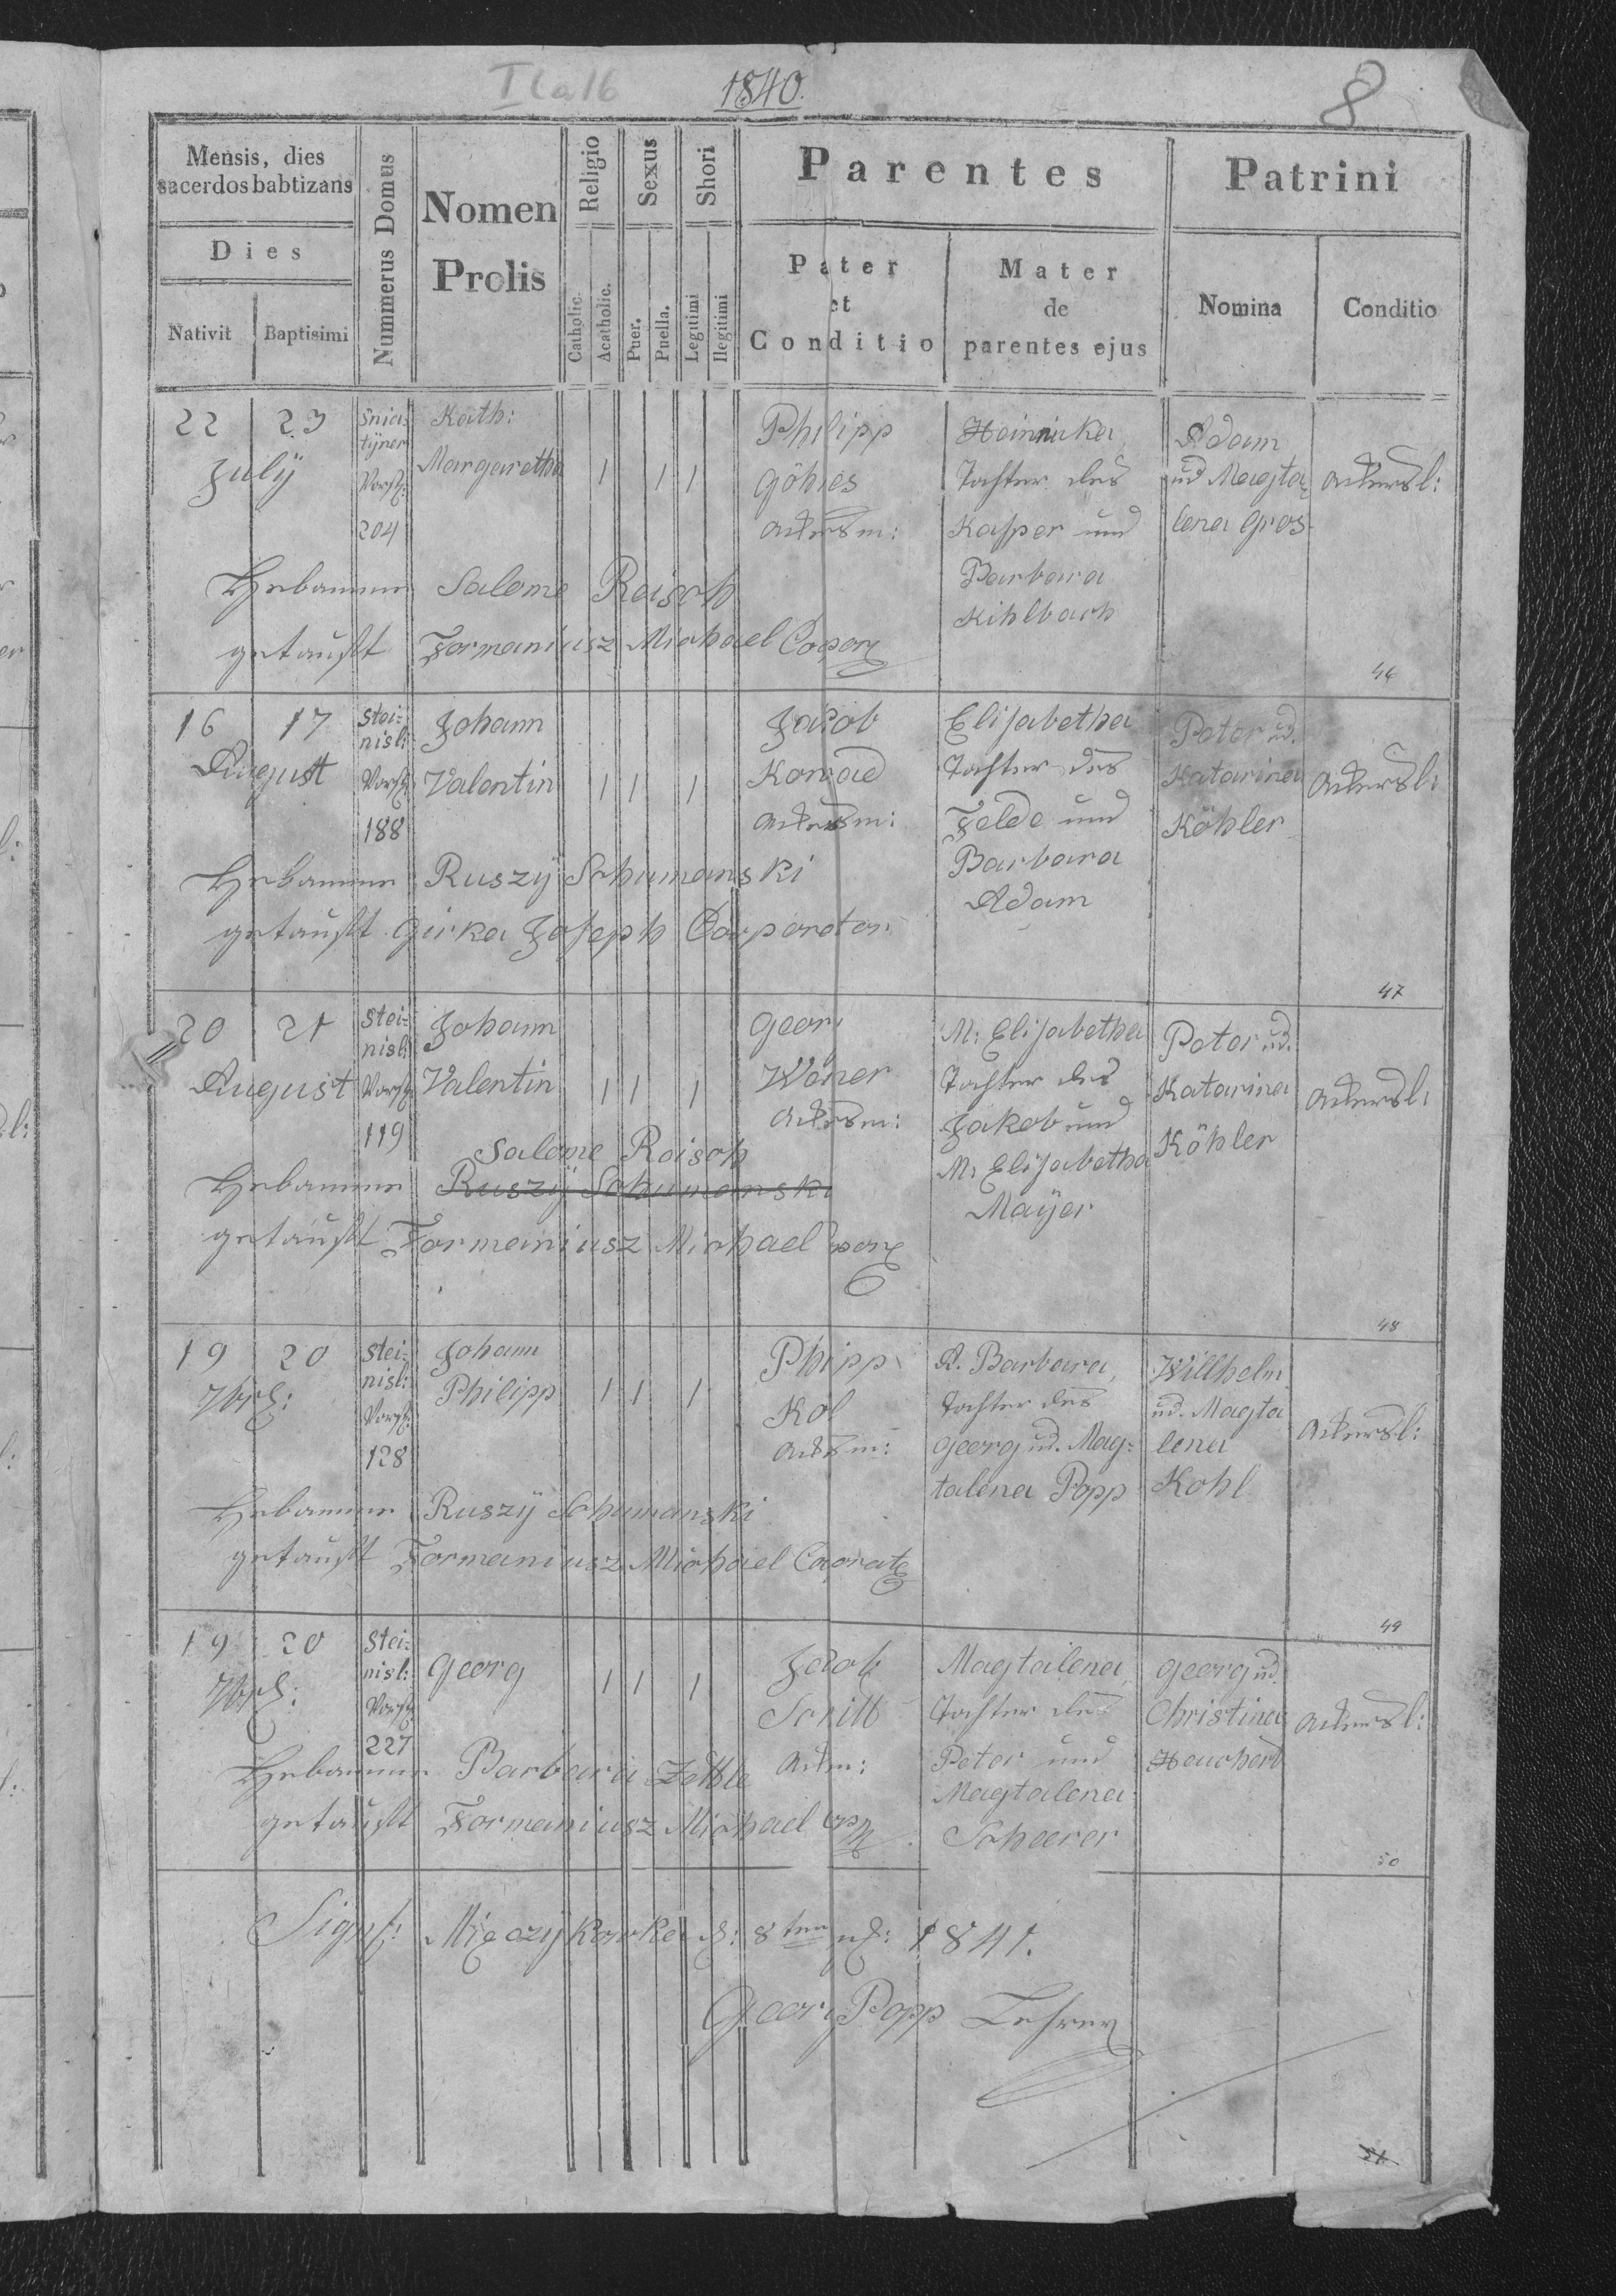 I(a16
1840.
8
Mensis, dies
sacerdos babtizans
Dies
Nativit
Baptisimi
Nummerus Domus
Nomen
Prolis
Religio
Catholic.
Acatholic.
Sexus
Puer.
Puella.
Shori
Legitimi
Ilegitimi
Parentes
Pater
et
Conditio
Mater
de
parentes ejus
Patrini
Nomina
Conditio
22 23
July
Snia-
tyner
Vorst:
204
Kath:
Margaretha
1 1 1
Philipp
Göhres
Akersm:
Heinrika
Tochter des
Kasper und
Barbara
Kihlbach
Adam
ud Magta
lena Gros
Akersl:
Hebamme Salome Reisch
getauft Formaniusz Michael Coper
46
16 17
August
Stei-
nisl:
Vorst:
188
Johann
Valentin
1 1 1
Jacob
Konrad
Akersm:
Elisabetha
Tochter des
Felde und
Barbara
Adam
Peter ud.
Katarina
Köhler
Akersl:
Hebamme Ruszÿ Schumanski
getauft Girka Joseph Corparator
47
20 21
August
Stei-
nisl:
Vorst:
119
Johann
Valentin
1 1 1
Georg
Woner
Akersm:
M: Elisabetha
Tochter des
Jakob und
M: Elisabetha
Maÿer
Peter ud.
Katarina
Köhler
Akersl:
Salome Reisch
Hebamme Ruszÿ Schumanski
getauft Formaniusz Michael
48
19 20
7bre:
Stei-
nisl:
Vorst:
128
Johann
Philipp
1 1 1
Phipp
Kol
Akersm:
A. Barbara,
Tochter des
Georg ud. Mag-
talena Popp
Willhelm
ud. Magta
lena
Kohl
Akersl:
Hebamme Ruszÿ Schumanski
getauft Formaniusz Michael
49
19 20
7bre:
Stei-
nisl:
Vorst:
227
Georg
1 1 1
Jacob
Schitt
Akm:
Magtalena
Tochter des
Peter und
Magtalena
Scheerer
Georg ud.
Christina
Heuchert
Akersl:
Hebamme Barbara Zettle
getauft Formaniusz Michael
50
Sigst: Migczÿkowka d: 8ten 1841.
Georg Popp Lehrer
51